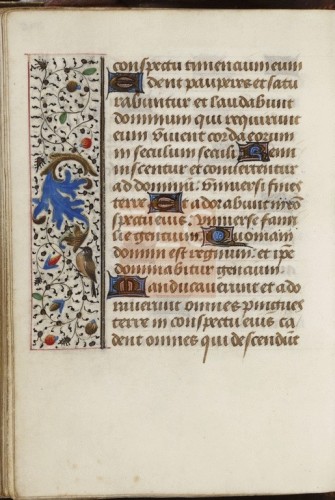 conspectu timencium eum
Edent pauperes et satu
rabuntur et laudabunt
dominum qui requirunt
eum vivent corda eorum
in seculum seculi Remi
niscentur et convertentur
ad dominum universi fines
terre Et adorabunt in con
spectu eius universe fami
lie gentium Quoniam
domini est regnum et ipse
dominabitur gencium
Manducaverunt et ado
raverunt omnes pingues
terre in conspectu eius ca
dent omnes qui descendunt